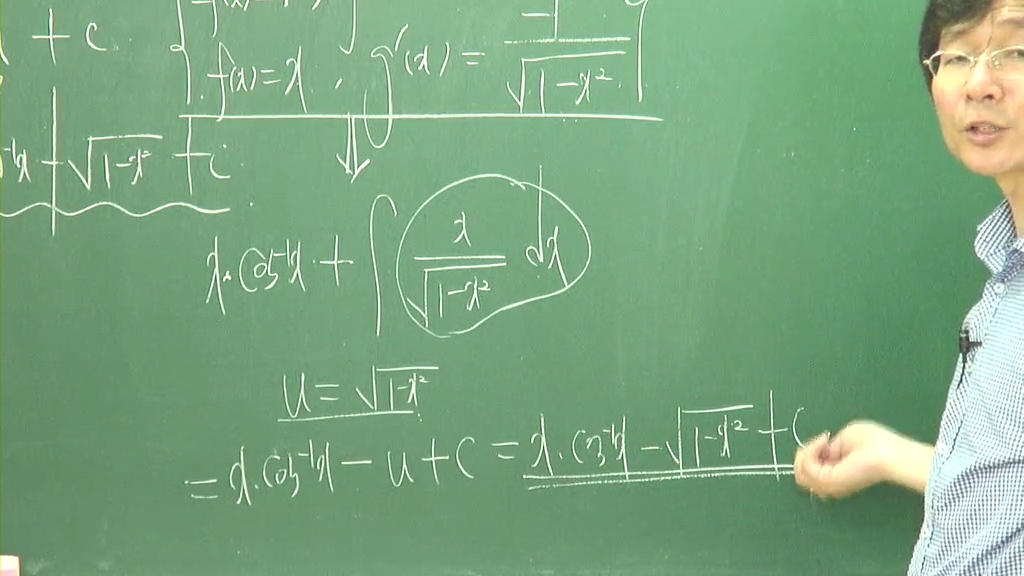 + c
f(x) = x , g'(x) = -1/√(1-x²)
+ √(1-x²) + c
x · cos⁻¹x + ∫ x/√(1-x²) dx
u = √(1-x²)
= x · cos⁻¹x - u + c = x · cos⁻¹x - √(1-x²) + c